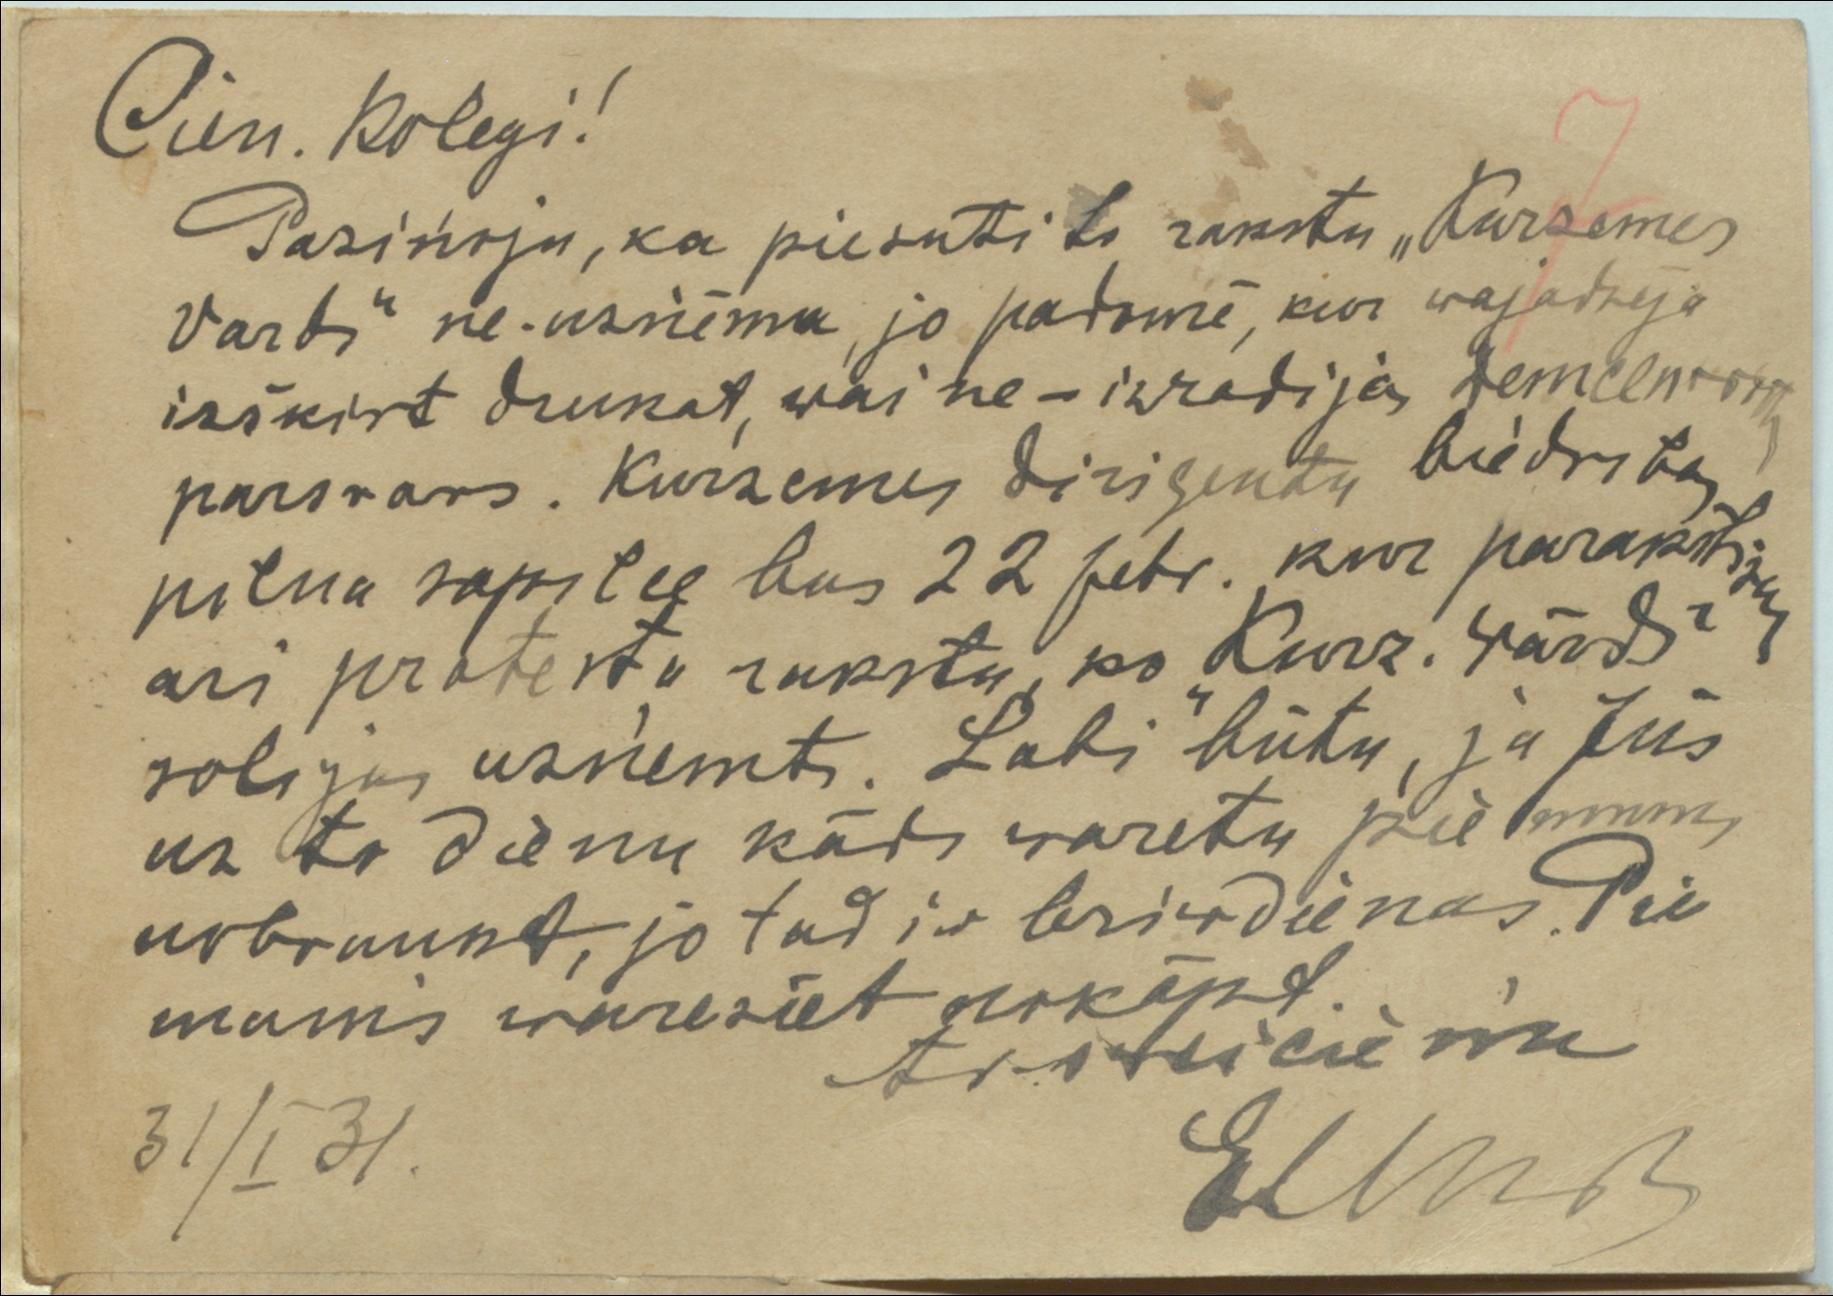 Cien. Kolegi!
7
Pazinoju, ka piesutito rakstu „Kurzemes
Vards" ne-uzņēma, jo padomē, kur wajadzēja
izšķirt drukat, wai ne – izradijas
parsvars. Kurzemes dirigentu biedribas
pilna sapulce bus 22 febr. kur parakstisim
ari protesta rakstu, ko „Kurz. Wārds"
solijas uzņemt. Labi būtu, ja Jūs
uz to dienu kāds waretu pie mums
nobraukt, jo tad ir brivdienas. Pie
manis waresiet nokāpt.
Ar sveicienu
31/I 31.